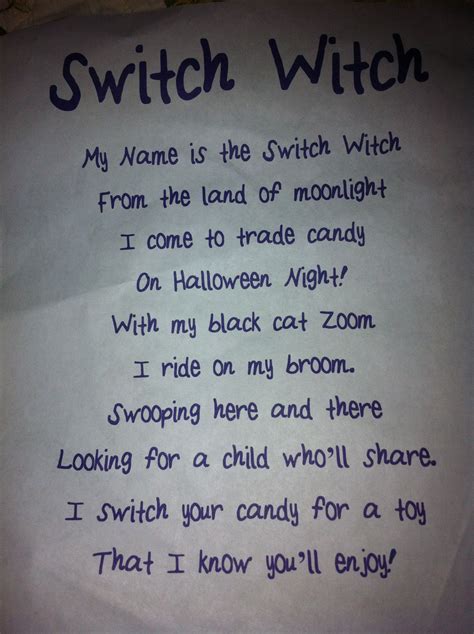 Switch Witch
My Name is the Switch Witch
From the land of moonlight
I come to trade candy
On Halloween Night!
With my black cat Zoom
I ride on my broom.
Swooping here and there
Looking for a child who'll share.
I switch your candy for a toy
That I know you'll enjoy!